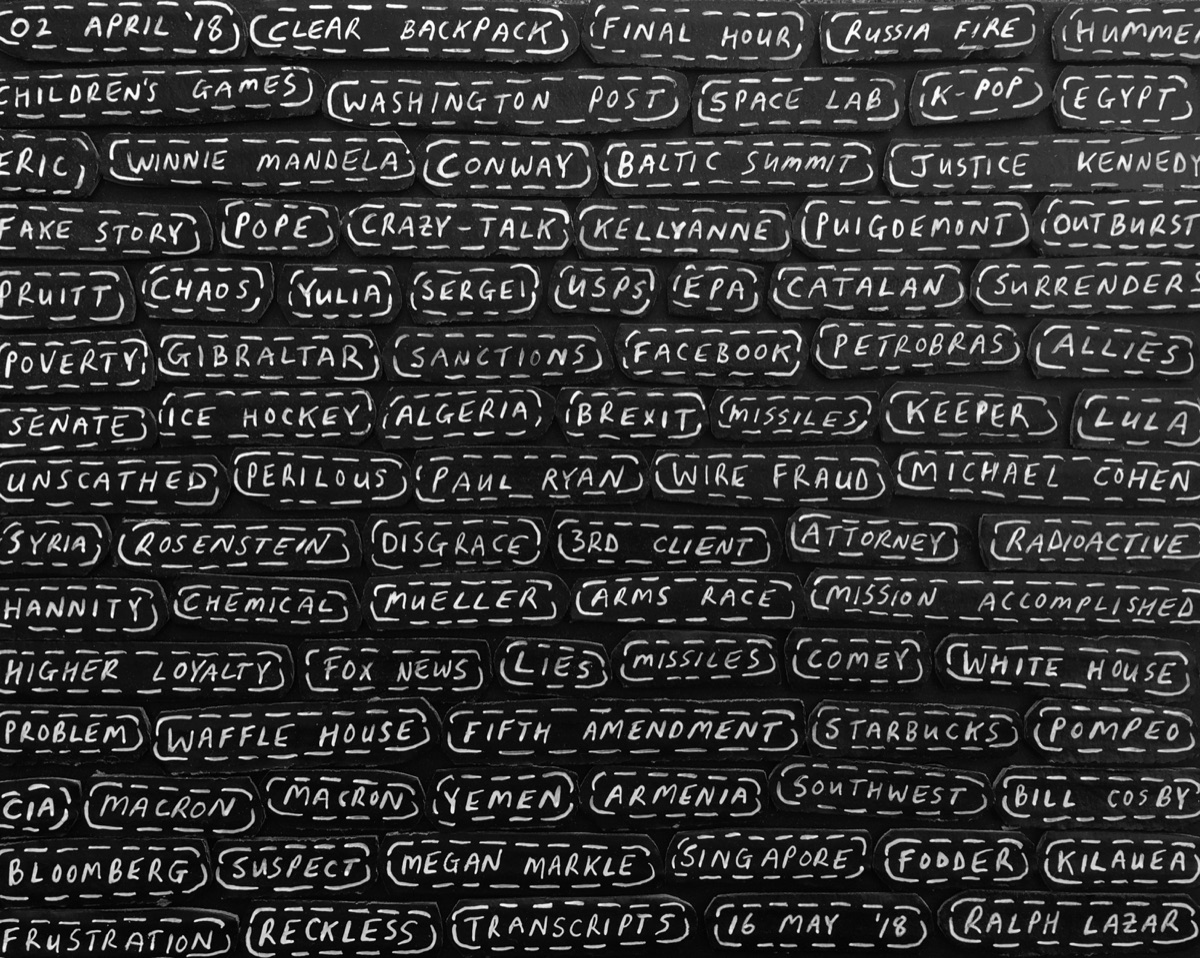 02 APRIL '18 CLEAR BACKPACK FINAL HOUR RUSSIA FIRE HUMMER
CHILDREN'S GAMES WASHINGTON POST SPACE LAB K-POP EGYPT
ERIC WINNIE MANDELA CONWAY BALTIC SUMMIT JUSTICE KENNEDY
FAKE STORY POPE CRAZY-TALK KELLYANNE PUIGDEMONT OUTBURST
PRUITT CHAOS YULIA SERGEI USPS EPA CATALAN SURRENDER
POVERTY GIBRALTAR SANCTIONS FACEBOOK PETROBRAS ALLIES
SENATE ICE HOCKEY ALGERIA BREXIT MISSILES KEEPER LULA
UNSCATHED PERILOUS PAUL RYAN WIRE FRAUD MICHAEL COHEN
SYRIA ROSENSTEIN DISGRACE 3RD CLIENT ATTORNEY RADIOACTIVE
HANNITY CHEMICAL MUELLER ARMS RACE MISSION ACCOMPLISHED
HIGHER LOYALTY FOX NEWS LIES MISSILES COMEY WHITE HOUSE
PROBLEM WAFFLE HOUSE FIFTH AMENDMENT STARBUCKS POMPEO
CIA MACRON MACRON YEMEN ARMENIA SOUTHWEST BILL COSBY
BLOOMBERG SUSPECT MEGAN MARKLE SINGAPORE FODDER KILAUEA
FRUSTRATION RECKLESS TRANSCRIPTS 16 MAY '18 RALPH LAZAR